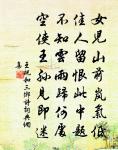 女兒山前嵐氣低
佳人留恨此中題
不知雲雨歸何處
空使王孫見即迷
王祝和三鄉詩詞典網
集